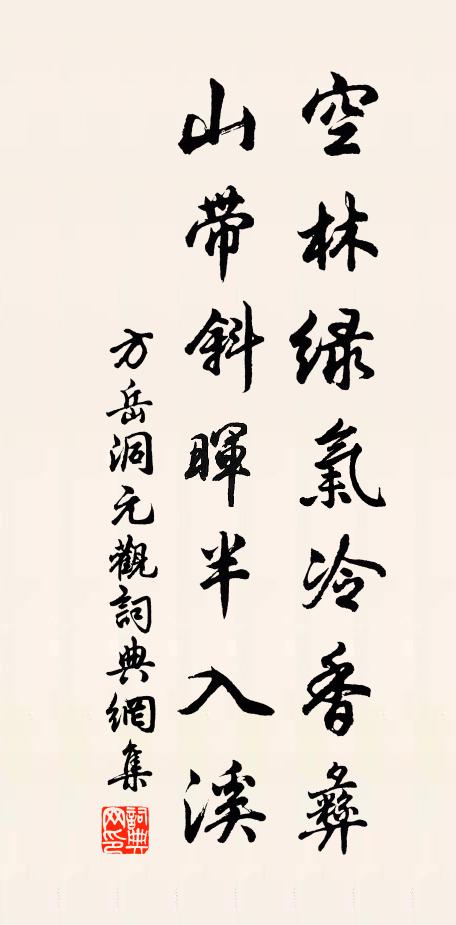 空林綠氣冷香彝
山帶斜暉半入溪
方岳洞元觀詞典網集
詞典
网印